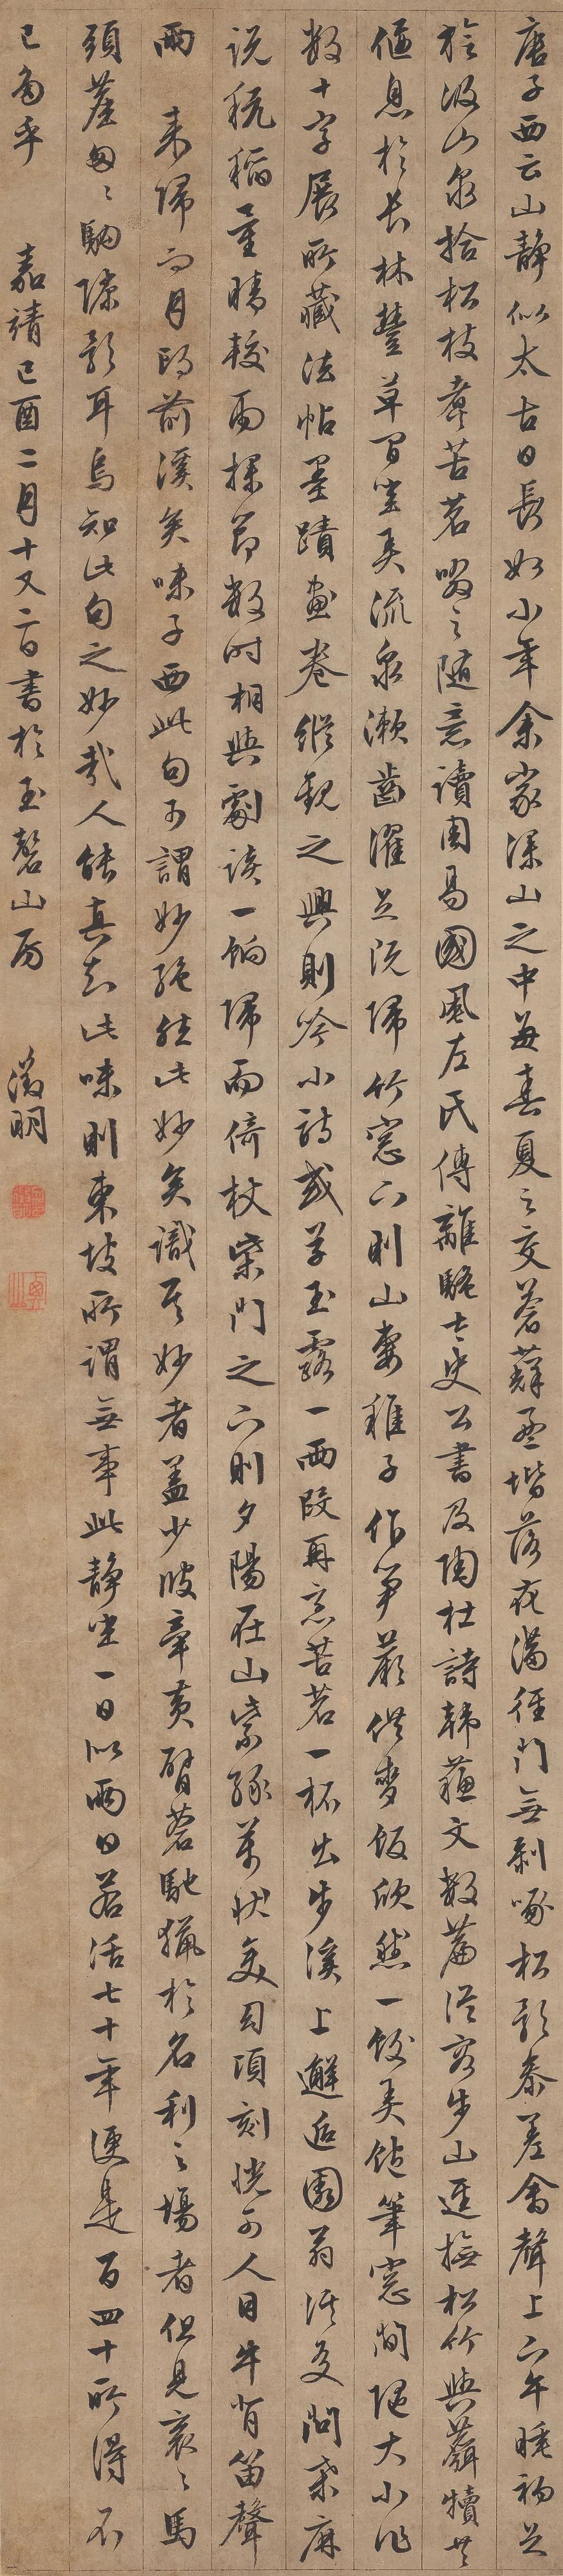 唐子西云山静似太古日長如小年余家深山之中每春夏之交蒼蘚盈堦落花滿徑門無剝啄松影參差禽聲上下午睡初足
旋汲山泉拾松枝煮苦茗啜之隨意讀周易國風左氏傳離騷太史公書及陶杜詩韓蘇文數篇從容步山逕撫松竹與麛犢共
偃息於長林豐草間坐弄流泉漱齒濯足既歸竹窓下則山妻稚子作笋蕨供麥飯欣然一飽弄筆窓間隨大小作
數十字展所藏法帖墨蹟畫卷縱觀之興則吟小詩或草玉露一兩段再烹苦茗一杯出步溪上邂逅園翁溪友問桑麻
說秔稻量晴校雨探節數时相與劇談一餉歸而倚杖柴門之下則夕陽在山紫綠萬狀變幻頃刻恍可人目牛背笛聲
兩 来歸而月印前溪矣味子西此句可謂妙絕然此妙矣識其妙者蓋少彼牽黄臂蒼馳獵於名利之場者但見衮衮馬
頭塵匆匆駒隙影耳烏知此句之妙哉人能真知此味則東坡所謂無事此静坐一日似兩日若活七十年便是百四十所得不
已多乎 嘉靖己酉二月十又二日書於玉磬山房 徵明